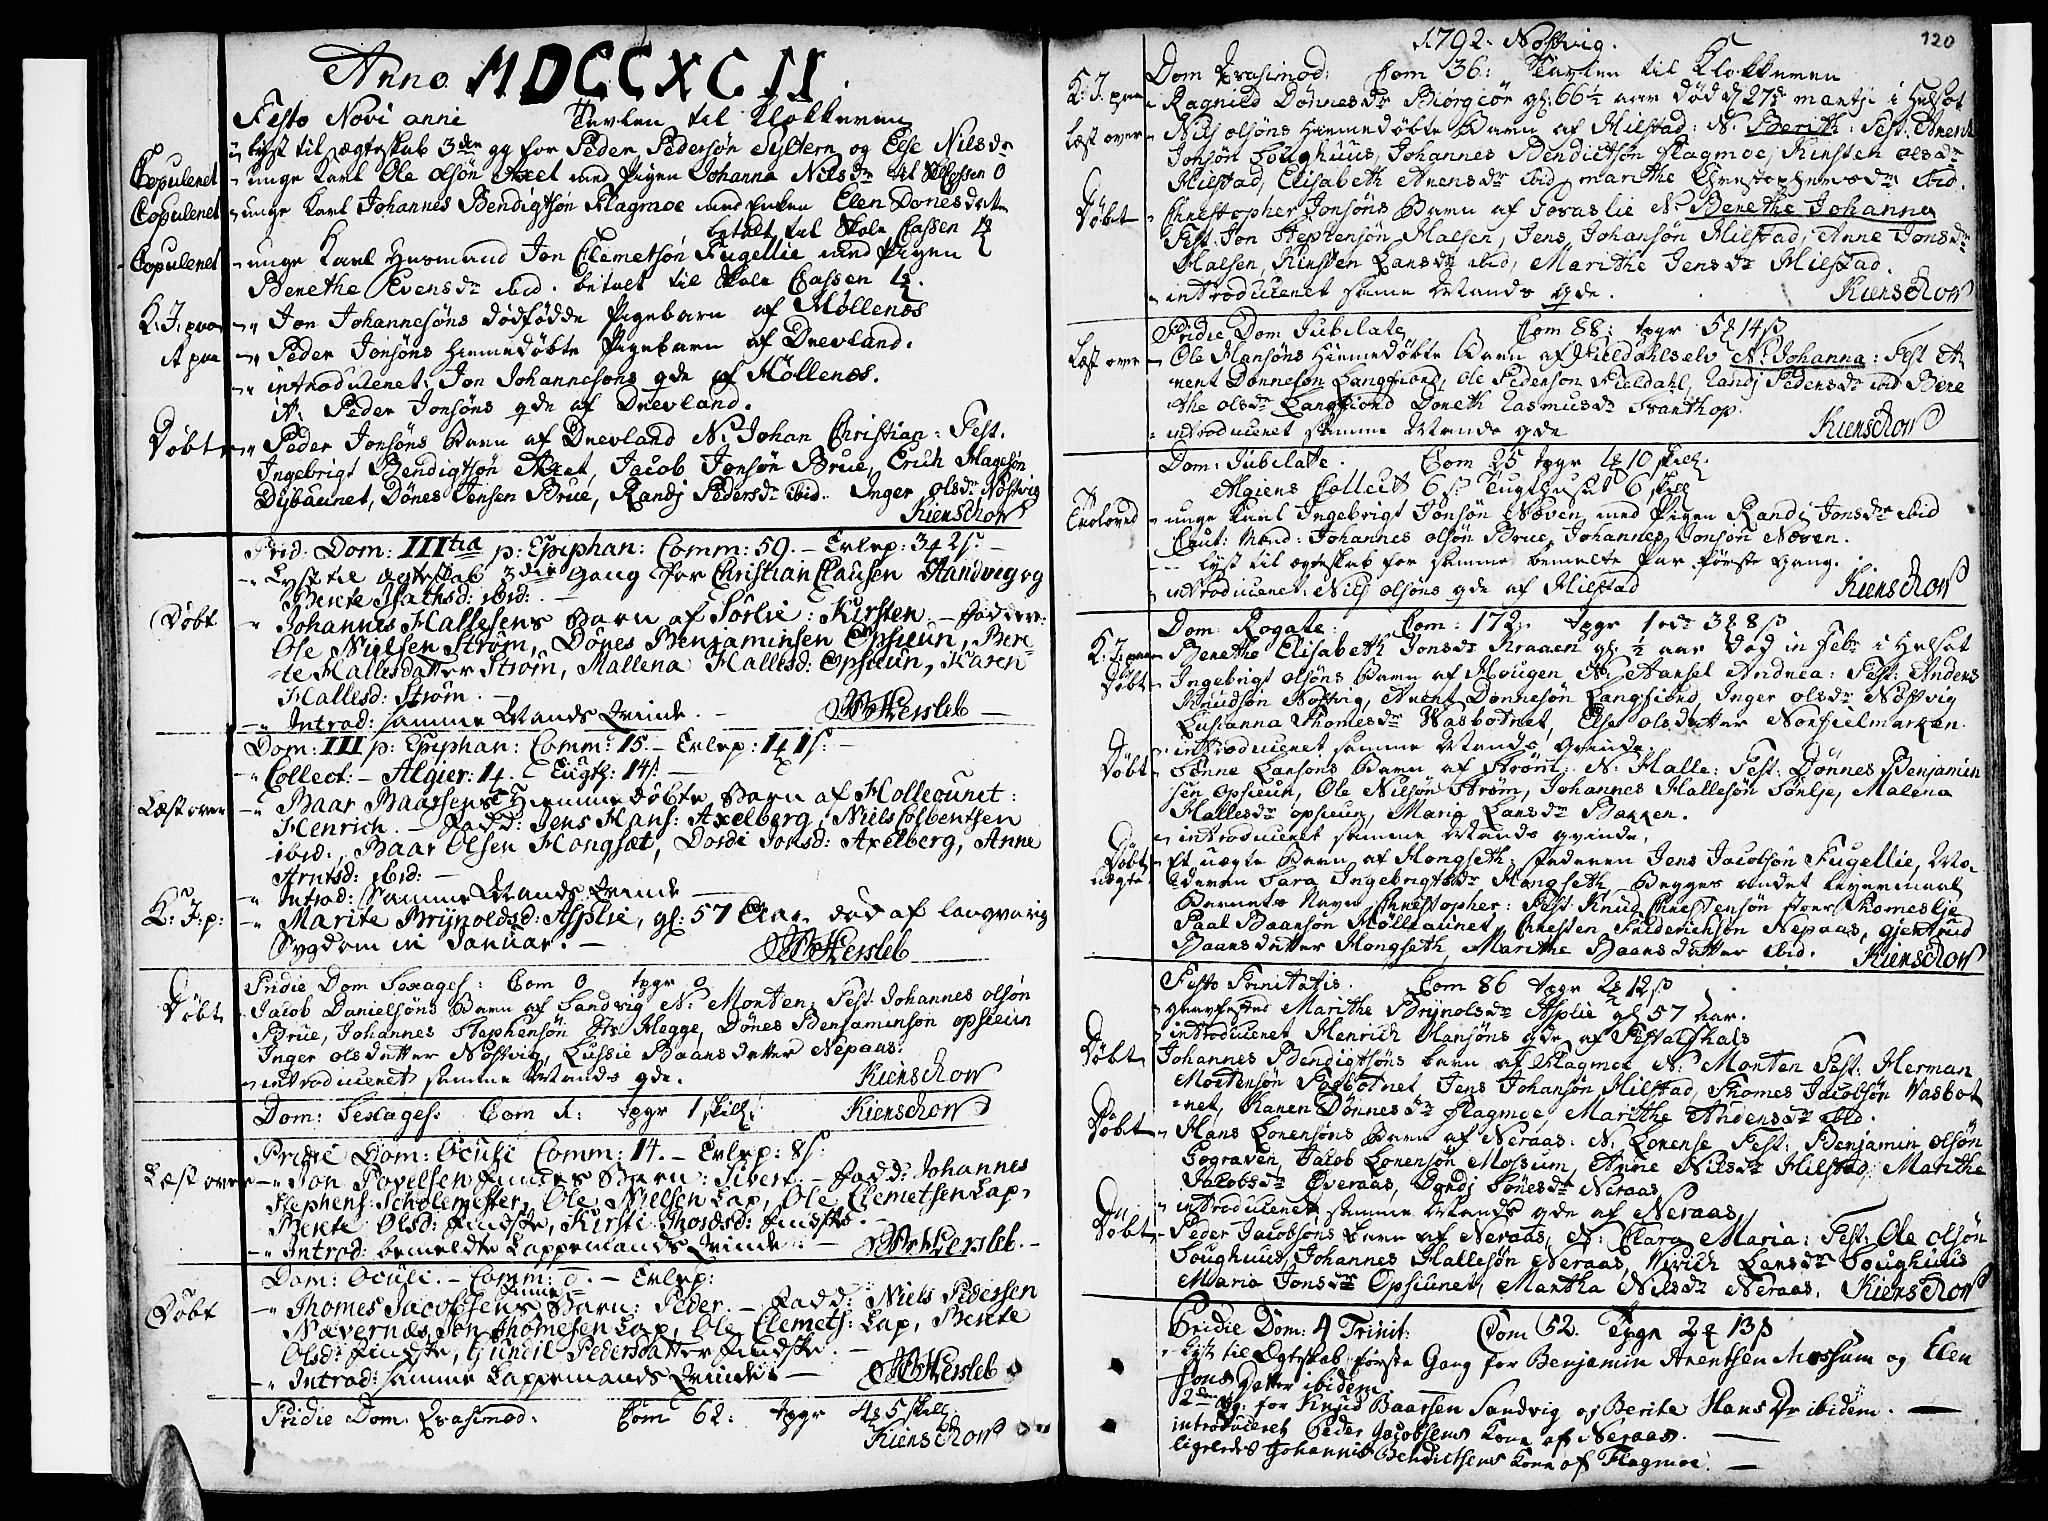 Anno MDCCXCII.
Festo Novi anni Tavlen til Klokkeren
lyst til ægteskab 3die gg for Peder Pedersøn Syltern og Else Nilsdr
Copuleret unge Karl Ole olsøn Axel med Pigen Johanna Nilsdr til Skolcassen 0
Copuleret unge Karl Johannes Bendigtsøn Flagmoe med Enken Elen Dønesdatter
betalt til Skole Cassen
Copuleret unge Karl Husmand Jon Clemetsøn Fugellie med Pigen
Berethe Evensdr ibid. betalt til Skole Cassen
K: J: paa Jon Johannesøns dødfødde Pigebarn af Møllenæs
It paa Peder Jonsøns hiemedøbte Pigebarn af Drevland.
introduceret: Jon Johannesøns qde af Møllenæs.
it. Peder Jonsøns qde af Drevland.
Døbt Peder Jonsøns Barn af Drevland N: Johan Christian: Test.
Ingebrigt Bendigtsøn Axel, Jacob Jonsøn Brue, Erich
Dybauenet, Dønes Jensen Brue, Randj Pedersdr ibid. Inger olsdr Nøstvig
Kierschow
Prid: Dom: IIItia p: Epiphan: Comm: 59. – Erlep: 3 2 s. –
Lyst til Ægteskab 3die Gang for Christian Clausen Aandvig og
Berete ibid:
Døbt Johannes Hallesens Barn af Sørlie: Kirsten – Fadder:
Ole Nielsen Strøm, Dönes Benjaminsen Opsieun, Bere-
te Hallesdatter Strøm, Mallena Hallesd: Opsieun, Karen
Hallesd: Strøm. –
Introd: samme Mands Qvinde. – Hersleb –
Dom: III p: Epiphan: Comm: 15. – Erlep: 1 1 s: –
Collect: – Algier: 1. Tugth: 14 s. –
Læst over Baar Baarsens Hiemme døbte Barn af Molleounet:
Henrich. – Fadd: Jens Hans: Axelberg, Niels Solbentsen
ibid:, Baar Olsen Hongsæt, Dordi Jonsd: Axelberg, Anne
Arntsd: ibid: –
Introd: samme Mands Qvinde –
K: J: p: Marite Brynoldsd: Asplie, gl: 57 Aar, død af langvarig
Sygdom in Januar. – Hersleb
Pridie Dom Sexages: Com 0 tpgr 0
Døbt Jacob Danielsøns Barn af Sandvig N: Morten: Test: Johannes olsøn
Brue, Johannes Stephensøn Hegge, Dönes Benjaminsøn opsieun
Inger olsdatter Nøstvig, Lussie Baarsdatter Nepaas.
introduceret samme Mands qde. Kierschow
Dom: Sexages: Com 1: tpgr 1 skill: Kierschow
Pridie Dom: Oculi Comm: 14. – Erlep: 8 s:
Læst over Jon Povelsen Findes Barn: Sivert. – Fadd: Johannes
Stephens: Scholemester, Ole Nielsen Lap, Ole Clemetsen Lap,
Berete Olsd: Findske, Kirsti Thordsd: Findske. –
Introd: bemeldte Lappemands Qvinde. – Hersleb. –
Dom: Oculi. – Comm: 0. – Erlep:
Døbt Thomes Jacobsens Barn: Peder. – Fadd: Niels Pedersen
Nævernæs, Jon Thomesen Lap, Ole Clemets: Lap, Berete
Olsd: Findske, Gunil Pedersdatter Findske. –
Introd: samme Lappemands Qvinde: – Hersleb
Pridie Dom: Qvasimod: Com 62: tpgr 4 5 skill:
Kierschow
1792. Nøstvig. 120
Dom Qvasimod: Com 36: Tavlen til Klokkeren
K: J. paa Ragnild Dønnesdr Biørgiør gl: 66 1/2 aar død d 27de martji i Helsot
Læst over Nils olsøns hiemedøbte Barn af Hilstad: N. Berith: Test. Arent
Jonsøn Soughuus, Johannes Bendictsøn Flagmoe, Kirsten olsdr
Hilstad, Elisabeth Arensdr ibid, marithe Christophersdr ibid.
Døbt Christopher Jonsøns Barn af Toraslie N. Berethe Johanna
Test. Jon Stephensøn Halsen, Jens Johansøn Hilstad, Anne Jonsdr
Halsen, Kirsten Larsdr ibid, Marithe Jensdr Hilstad.
introduceret samme Mands qde. Kierschow
Pridie Dom Jubilate Com 88: tpgr 5 14 s
Læst over Ole Hansøns hiemedøbte Barn af Fieldahlselv N. Johanna: Test A-
rent Dønnesøn Langfiord, Ole Pedersøn Fieldahl, Randj Pedersdr ibid Bere
the olsdr Langfiord Doreth Rasmusdr Tranthop.
introduceret samme Mands qde Kierschow
Dom: Jubilate. Com 25 tpgr 1 10 skill.
Algiers Collect 6 s. Tugthuset 6 skill
Troloved unge Karl Ingebrigt Jonsøn Næven med Pigen Randi Jonsdr ibid
Caut: Mænd: Johannes olsøn Brue, Johannes Jonsøn Næven.
lyst til ægteskab for samme bemelte Par første Gang.
introduceret: Nils olsøns qde af Hilstad Kierschow
Dom: Rogate: Com: 172. tpgr 1 3 8 s
K: J: paa Berethe Elisabeth Jonsdr Kraaen gl: 1/2 aar død in Febr i Helsot
Døbt Ingebrigt olsøns Barn af Hougen N: Andrea: Test: Anders
Knudsøn Nøstvig, Arent Dønnesøn Langfiord, Inger olsdr Nøstvig
Lusianna Thomesdr Wasbotnet, Else olsdatter Norfielmarken.
introduceret samme Mands qvinde.
Døbt Tønne Larsøns Barn af Strøm: N: Halle: Test: Dønnes Benjamin
sen opsieun, Ole Nilsøn Strøm, Johannes Hallesøn Sørlje, Malena
Hallesdr opsieun, Maria Larsdr Bakken.
introduceret samme Mands qvinde.
Døbt uægte Et uægte Barn af Hongseth: Faderen Jens Jacobsøn Fugellie, Mo-
deren Sara Ingebrigtsdr Hongseth, Begges andet leyermaal
Barnets Navn Christopher: Test: Knud Christensøn Thomeslie
Paal Baarsøn Mölleaunet, Christen Friderichsøn Nepaas, Gjertrud
Baarsdatter Hongseth, Marithe Baarsdatter ibid. Kierschow
Festo Trinitatis. Com 86 tpgr 2 12 s
gravfested Marithe Brynolsdr Asplie gl 57 aar.
introduceret Henrich Hansøns qde af
Døbt Johannes Bendigtsøns barn af Flagmoe N: Morten Test: Herman
Mortensøn Fosbotnet, Jens Johansøn Hilstad, Thomes Jacobsøn Vasbot
net, Karen Dønnesdr Flagmoe, Marithe Andersdr ibid.
Døbt Hans Lorensøns Barn af Neraas: N: Lorense Test: Benjamin olsøn
Sograven, Jacob Lorensøn Mossum, Anne Nilsdr Hilstad, Marithe
Jacobsdr Overaas, Dordj Tønesdr Neraas
introduceret samme Mands qde af Neraas
Døbt Peder Jacobsøns barn af Neraas, N: Clara Maria: Test: Ole olsøn
Soughuut, Johannes Hallesøn Neraas, Wirich Larsdr Soughuus
Maria Jonsdr Opsiunet, Martha Nilsdr Neraas. Kierschow
Pridie Dom: 4 Trinit: Com 52. Tpgr 2 13 s
Lyst til Ægteskab første Gang for Benjamin Arentsen Mossum og Elen
Jons Datter ibidem.
2den gg: for Knud Baarsen Sandvig og Berite Hans Dr ibidem. –
introduceret Peder Jacobsens Kone af Neraas. –
ligeledes Johannis Bendictsens Kone af Flagmoe. –